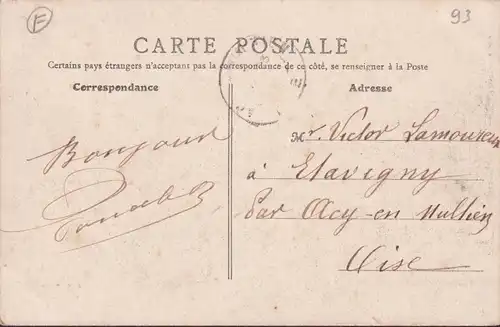 E
93
CARTE POSTALE
Certains pays étrangers n'acceptant pas la correspondance de ce côté, se renseigner à la Poste
Correspondance
Adresse
Bonjour
Mr. Victor Lamoureux
à Etavigny
par Acy-en Multien
Oise